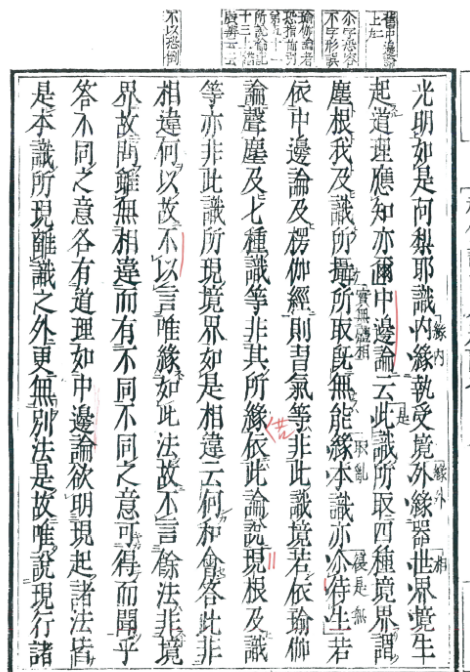 光明如是阿梨耶識內緣執受境外緣器世界境生
起道理應知亦爾中邊論云此識所取四種境界謂
塵根我及識所攝所取既無能緣本識亦尒待生若
依中邊論及楞伽經則習氣等非此識境若依瑜伽
論聲塵及七種識等非其所緣依此論說現根及識
等亦非此識所現境界如是相違云何和會答此非
相違何以故不以言唯緣如此法故不言餘法非境
界故問雖無相違而有不同不同之意可得而聞乎
答不同之意各有道理如中邊論欲明現起諸法皆
是本識所現離識之外更無別法是故唯說現行諸
不以恐倒
緣內
緣外
實無體相